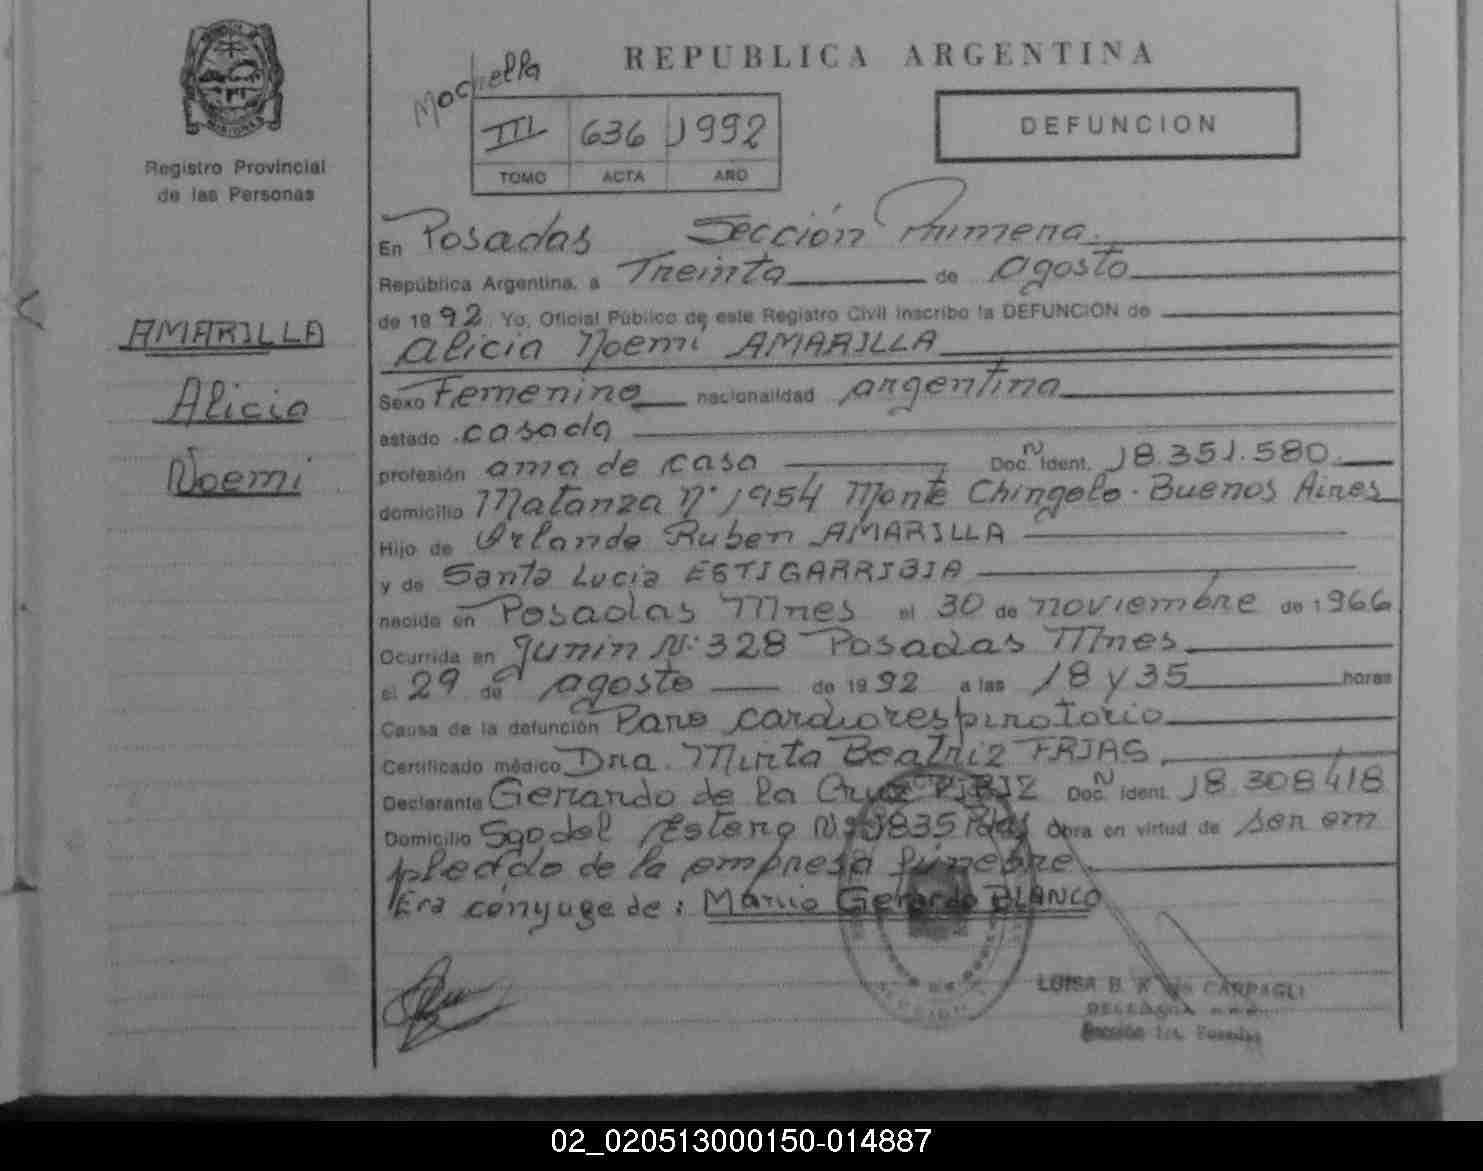 REPUBLICA ARGENTINA
MISIONES
Registro Provincial
de las Personas
III 636 1992
TOMO ACTA AÑO
DEFUNCION
AMARILLA
Alicia
Noemi
En Posadas Sección Primera.
República Argentina, a Treinta de agosto
de 1992. Yo, Oficial Público de este Registro Civil inscribo la DEFUNCION de
Alicia Noemi AMARILLA
Sexo Femenino nacionalidad argentina
estado casada
profesión ama de casa Doc. N Ident. 18.351.580.
domicilio Matanza N° 1954 Monte Chingolo. Buenos Aires
Hijo de Orlando Ruben AMARILLA
y de Santa Lucia ESTIGARRIBIA
nacido en Posadas Mnes el 30 de noviembre de 1966
Ocurrida en Junin N° 328 Posadas Mnes
el 29 de agosto de 1992 a las 18 y 35 horas
Causa de la defunción Paro cardiorespiratorio
Certificado médico Dra. Mirta Beatriz FRIAS
Declarante Gerardo de la Cruz Doc. N Ident. 18.308418
Domicilio Sgo del Estero N° 1835 Pdas Obra en virtud de ser em
pleado de la empresa fúnebre
Era cónyuge de: Mario Gerardo BLANCO
LUISA B. CARPAGLI
02_020513000150-014887